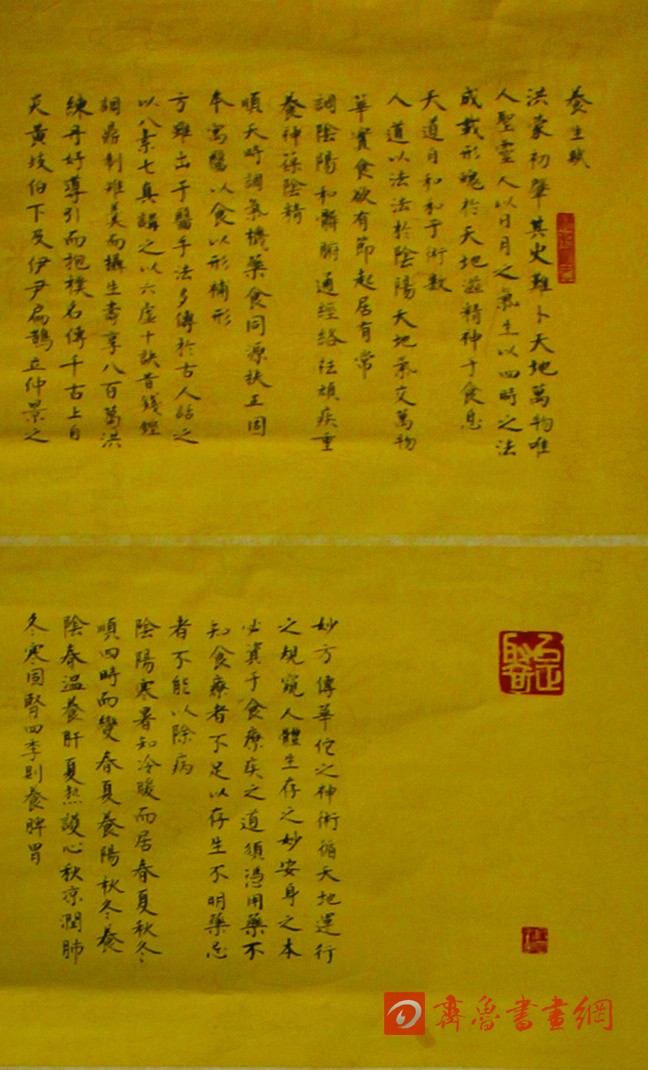 養生賦
洪蒙初肇其史難卜天地萬物唯
人聖靈人以日月之氣生以四時之法
成載形魄於天地遊精神于食息
天道自和和于術數
人道以法法於陰陽天地氣交萬物
華實食飲有節起居有常
調陰陽和髒腑通經絡祛頑疾重
養神葆陰精
順天時調氣機藥食同源扶正固
本寓醫以食以形補形
方雖出于醫手法多傳於古人話之
以八素七真講之以六虛十訣昔錢鏗
調鼎制雉羹而攝生壽享八百葛洪
練丹好導引而抱樸名傳千古上自
炎黃岐伯下及伊尹扁鵲立仲景之
妙方傳華佗之神術循天地運行
之規窺人體生存之妙安身之本
必資于食療疾之道須憑用藥不
知食療者不足以存生不明藥忌
者不能以除病
陰陽寒暑知冷暖而居春夏秋冬
順四時而變春夏養陽秋冬養
陰春溫養肝夏熱護心秋涼潤肺
冬寒固腎四季則養脾胃
齊魯書畫網